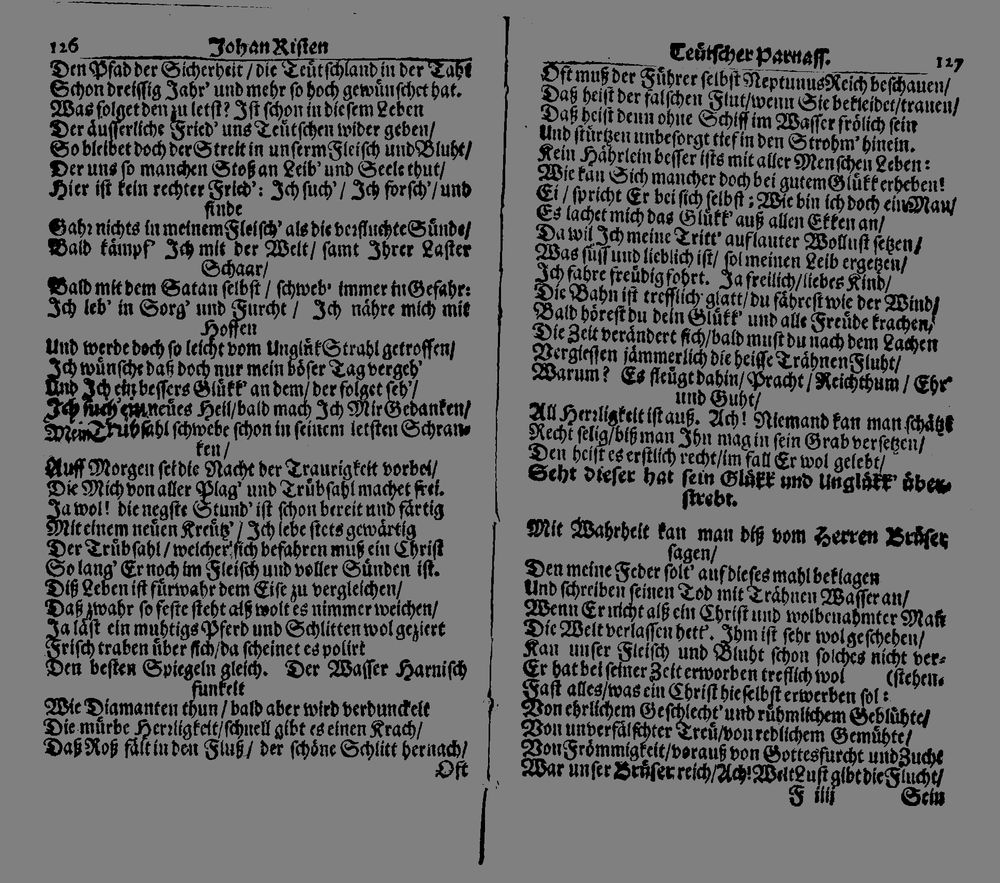 126 Johan Risten
Den Pfad der Sicherheit / die Teütschland in der Taht
Schon dreissig Jahr' und mehr so hoch gewünschet hat.
Was folget den zu letst? Ist schon in diesem Leben
Der äusserliche Fried' uns Teütschen wider geben /
So bleibet doch der Streit in unserm Fleisch und Bluht /
Der uns so manchen Stoß an Leib' und Seele thut /
Hier ist kein rechter Fried': Ich such' / Ich forsch' / und
finde
Gahr nichts in meinem Fleisch' als die verfluchte Sünde /
Bald kämpf' Ich mit der Welt / samt Ihrer Laster
Schaar /
Bald mit dem Satan selbst / schweb' immer in Gefahr:
Ich leb' in Sorg' und Furcht / Ich nähre mich mit
Hoffen
Und werde doch so leicht vom Unglük Strahl getroffen /
Ich wünsche daß doch nur mein böser Tag vergeh'
Und Ich ein bessers Glükk' an dem / der folget seh' /
Ich such' ein neües Heil / bald mach Ich Mir Gedanken /
Mein Trübsahl schwebe schon in seinem letsten Schran-
ken /
Auff Morgen sei die Nacht der Traurigkeit vorbei /
Die Mich von aller Plag' und Trübsahl machet frei.
Ja wol! die negste Stund' ist schon bereit und färtig
Mit einem neüen Kreütz' / Ich lebe stets gewärtig
Der Trübsahl / welcher sich befahren muß ein Christ
So lang' Er noch im Fleisch und voller Sünden ist.
Diß Leben ist fürwahr dem Eise zu vergleichen /
Daß zwahr so feste steht alß wolt es nimmer weichen /
Ja läst ein muhtigs Pferd und Schlitten wol geziert
Frisch traben über sich / da scheinet es polirt
Den besten Spiegeln gleich. Der Wasser Harnisch
funkelt
Wie Diamanten thun / bald aber wird verdunckelt
Die mürbe Herrligkeit / schnell gibt es einen Krach /
Daß Roß fält in den Fluß / der schöne Schlitt hernach /
Oft
Teütscher Parnass. 127
Oft muß der Führer selbst Neptunus Reich beschauen /
Daß heist der falschen Flut / wenn Sie bekleidet / trauen /
Daß heist denn ohne Schiff im Wasser frölich sein
Und stürtzen unbesorgt tief in den Strohm' hinein.
Kein Hährlein besser ists mit aller Menschen Leben:
Wie kan Sich mancher doch bei gutem Glükk erheben!
Ei / spricht Er bei sich selbst: Wie bin ich doch ein Man /
Es lachet mich das Glükk' auß allen Ekken an /
Da wil Ich meine Tritt' auf lauter Wollust setzen /
Was süss und lieblich ist / sol meinen Leib ergetzen /
Ich fahre freüdig fohrt. Ja freilich / liebes Kind /
Die Bahn ist trefflich glatt / du fährest wie der Wind /
Bald hörest du dein Glükk' und alle Freüde krachen,
Die Zeit verändert sich / bald must du nach dem Lachen
Vergiessen jämmerlich die heisse Trähnen Fluht /
Warum? Es fleügt dahin / Pracht / Reichthum / Ehr'
und Guht /
All Herrligkeit ist auß. Ach! Niemand kan man schätzt
Recht selig / biß man Ihn mag in sein Grab versetzen /
Den heist es erstlich recht / im fall Er wol gelebt /
Seht dieser hat sein Glükk und Unglükk' über-
strebt.
Mit Wahrheit kan man diß vom Herren Brüser
sagen /
Den meine Feder solt' auf dieses mahl beklagen
Und schreiben seinen Tod mit Trähnen Wasser an /
Wenn Er nicht alß ein Christ und wolbenahmter Man
Die Welt verlassen hett'. Ihm ist sehr wol geschehen /
Kan unser Fleisch und Bluht schon solches nicht ver-
Er hat bei seiner Zeit erworben treflich wol (stehen-
Fast alles / was ein Christ hieselbst erwerben sol:
Von ehrlichem Geschlecht' und rühmlichem Geblühte /
Von unverfälschter Treü / von redlichem Gemühte /
Von Frömmigkeit / vorauß von Gottesfurcht und Zucht
War unser Brüser reich / Ach! Welt Lust gibt die Flucht /
F iiij Sein